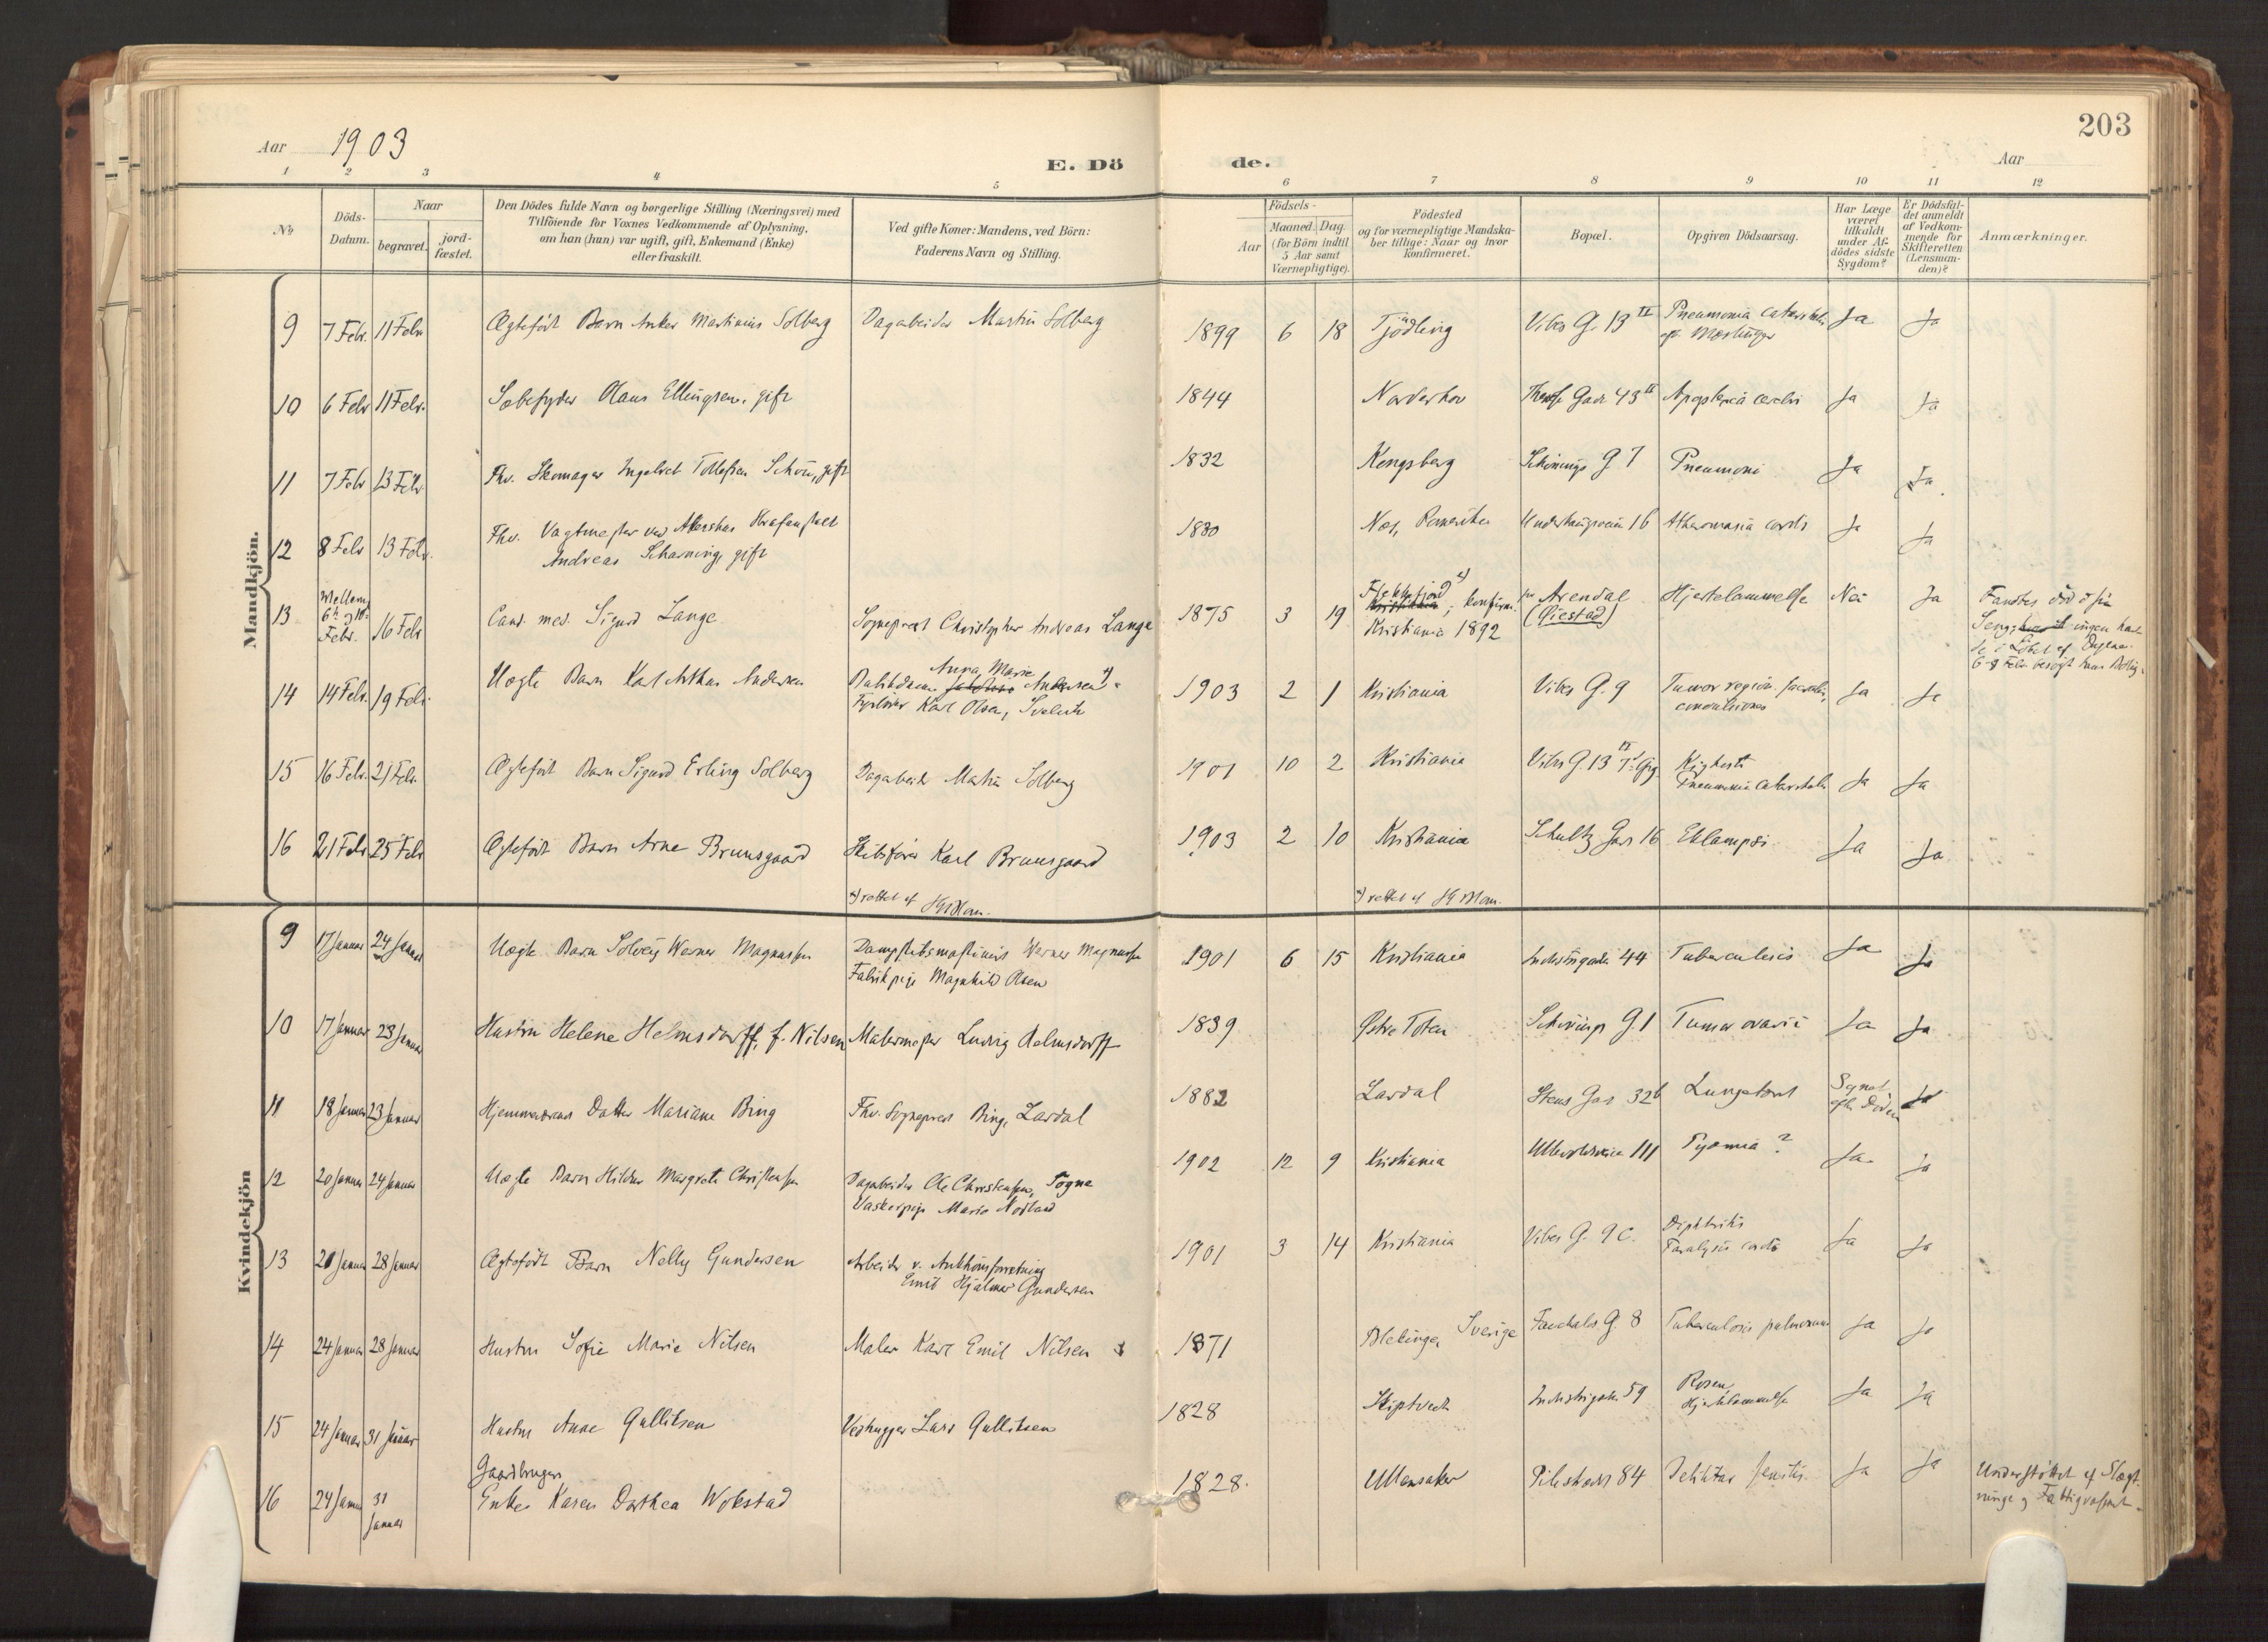 203
Aar 1903
E. Dö de.
Aar
1 2 3 4 5 6 7 8 9 10 11 12
№
Döds-Datum.
Naar
begravet.
jord-fæstet.
Den Dödes fulde Navn og borgerlige Stilling (Næringsvei) med
Tilföiende for Voxnes Vedkommende af Oplysning,
om han (hun) var ugift, gift, Enkemand (Enke)
eller fraskilt.
Ved gifte Koner: Mandens, ved Börn:
Faderens Navn og Stilling.
Födsels-
Aar
Maaned. Dag.
(for Börn indtil
5 Aar samt
Værnepligtige).
Födested
og for værnepligtige Mandska-
ber tillige: Naar og hvor
konfirmeret.
Bopæl.
Opgiven Dödsaarsag.
Har Læge
været
tilkaldt
under Af-
dödes sidste
Sygdom?
Er Dödsfal-
det anmeldt
af Vedkom-
mende for
Skifteretten
(Lensman-
den)?
Anmærkninger.
Mandkjön.
9 7 Febr. 11 Febr Ægtefödt Barn Anker Martinius Solberg Dagarbeider Martin Solberg 1899 6 18 Tjödling Vibes G. 13 II Pneumonia catarrhalis Ja Ja
eft. Mæslinger
10 6 Febr 11 Febr. Olaus Ellingsen, gift 1844 Norderhov Gade 43 II Apoplexia cerebri Ja Ja
11 7 Febr 13 Febr Fhv. Skomager Ingebret Tollefsen Schou, gift 1832 Kongsberg Schönings G 7 Pneumoni Ja Ja.
12 8 Febr 13 Febr. Fhv. Vagtmester ved Akershus Strafanstalt 1830 Nes, Romerike 16 cordis Ja Ja
Andreas Scharning, gift
13 Mellem 6te og 10de Febr. 16 Febr Cand. med. Sigurd Lange Sogneprest Christopher Andreas Lange 1875 3 19 Flekkefjord x) Kristiania; konfirm. Kristiania 1892 Arendal (Öiestad) Hjertelammelse Nei Ja Fandtes död i sin
Seng; ingen havde i Löbet af Dagene
6-9 Febr besögt hans Bolig.
14 14 Febr. 19 Febr Uægte Barn Karl Arthur Andersen Anna Marie Andersen x)
Karl Olsen, Svelvik 1903 2 1 Kristiania Vibes G. 9 Tumor region. sacralis, Ja Ja
convulsiones
15 16 Febr. 21 Febr. Ægtefödt Barn Sigurd Erling Solberg Dagarbeider Martin Solberg 1901 10 2 Kristiania Vibes G. 13 II Kighoste Ja Ja
Pneumonia catarrhalis
16 21 Febr 25 Febr Ægtefödt Barn Arne Bruusgaard Skibsförer Karl Bruusgaard 1903 2 10 Kristiania Schultz Gade 16 Eklampsi Ja Ja
x) rettet af
x) rettet af
Kvindekjön
9 17 Januar 24 Januar Uægte Barn Solveig Werner Magnussen Dampskibsmaskinist Werner Magnussen 1901 6 15 Kristiania Industrigaden 44 Tuberculosis Ja Ja
Fabrikpige Magnhild Olsen
10 17 Januar 23 Januar Hustru Helene Helmsdorff, f. Nilsen Malermester Ludvig Helmsdorff 1839 Östre Toten Schönings G. 1 Tumor ovarii Ja Ja
11 18 Januar 23 Januar Hjemmeværende Datter Mariane Bing Fhv. Sogneprest Bing, Lardal 1882 Lardal Stens Gad 32b Lungebetændelse Synet efter Döden Ja
12 20 Januar 24 Januar Uægte Barn Hildur Margrete Christensen Dagarbeider Ole Christensen, Sogne 1902 12 9 Kristiania Ullevoldsveien 111 Pyæmia? Ja Ja
Vaskerpige Marie
13 21 Januar 28 Januar Ægtefödt Barn Nelly Gundersen Arbeider v. Auktionsforretning 1901 3 14 Kristiania Vibes G. 9 C. Diphteritis Ja Ja
Emil Hjalmar Gundersen Paralysis cordis
14 24 Januar 28 Januar Hustru Sofie Marie Nilsen Maler Karl Emil Nilsen 1871 Blekinge, Sverige Fauchalds G. 8 Tuberculosis pulmonum Ja Ja
15 24 Januar 31 Januar Hustru Anne Gulliksen Vedhugger Lars Gulliksen 1828 Skiptvedt Industrigaden 59 Rosen, Ja Ja
Hjertelammelse
16 24 Januar 31 Januar Gaardbruger
Enke Karen Dorthea Wokstad 1828. Ullensaker Pilestrædet 84 senilis Ja Ja Understöttet af Slægt-
ninge og Fattigvæsenet.